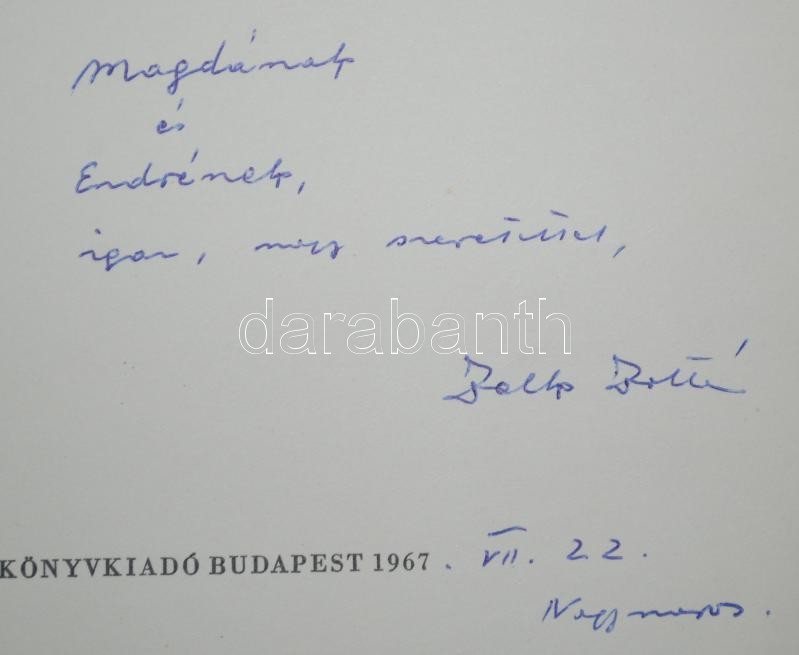 Magdának
és
Endrének,
igaz, nagy szeretettel,
darabanth
Zelk Zoltán
KÖNYVKIADÓ BUDAPEST 1967. VII. 22.
Nagymaros.